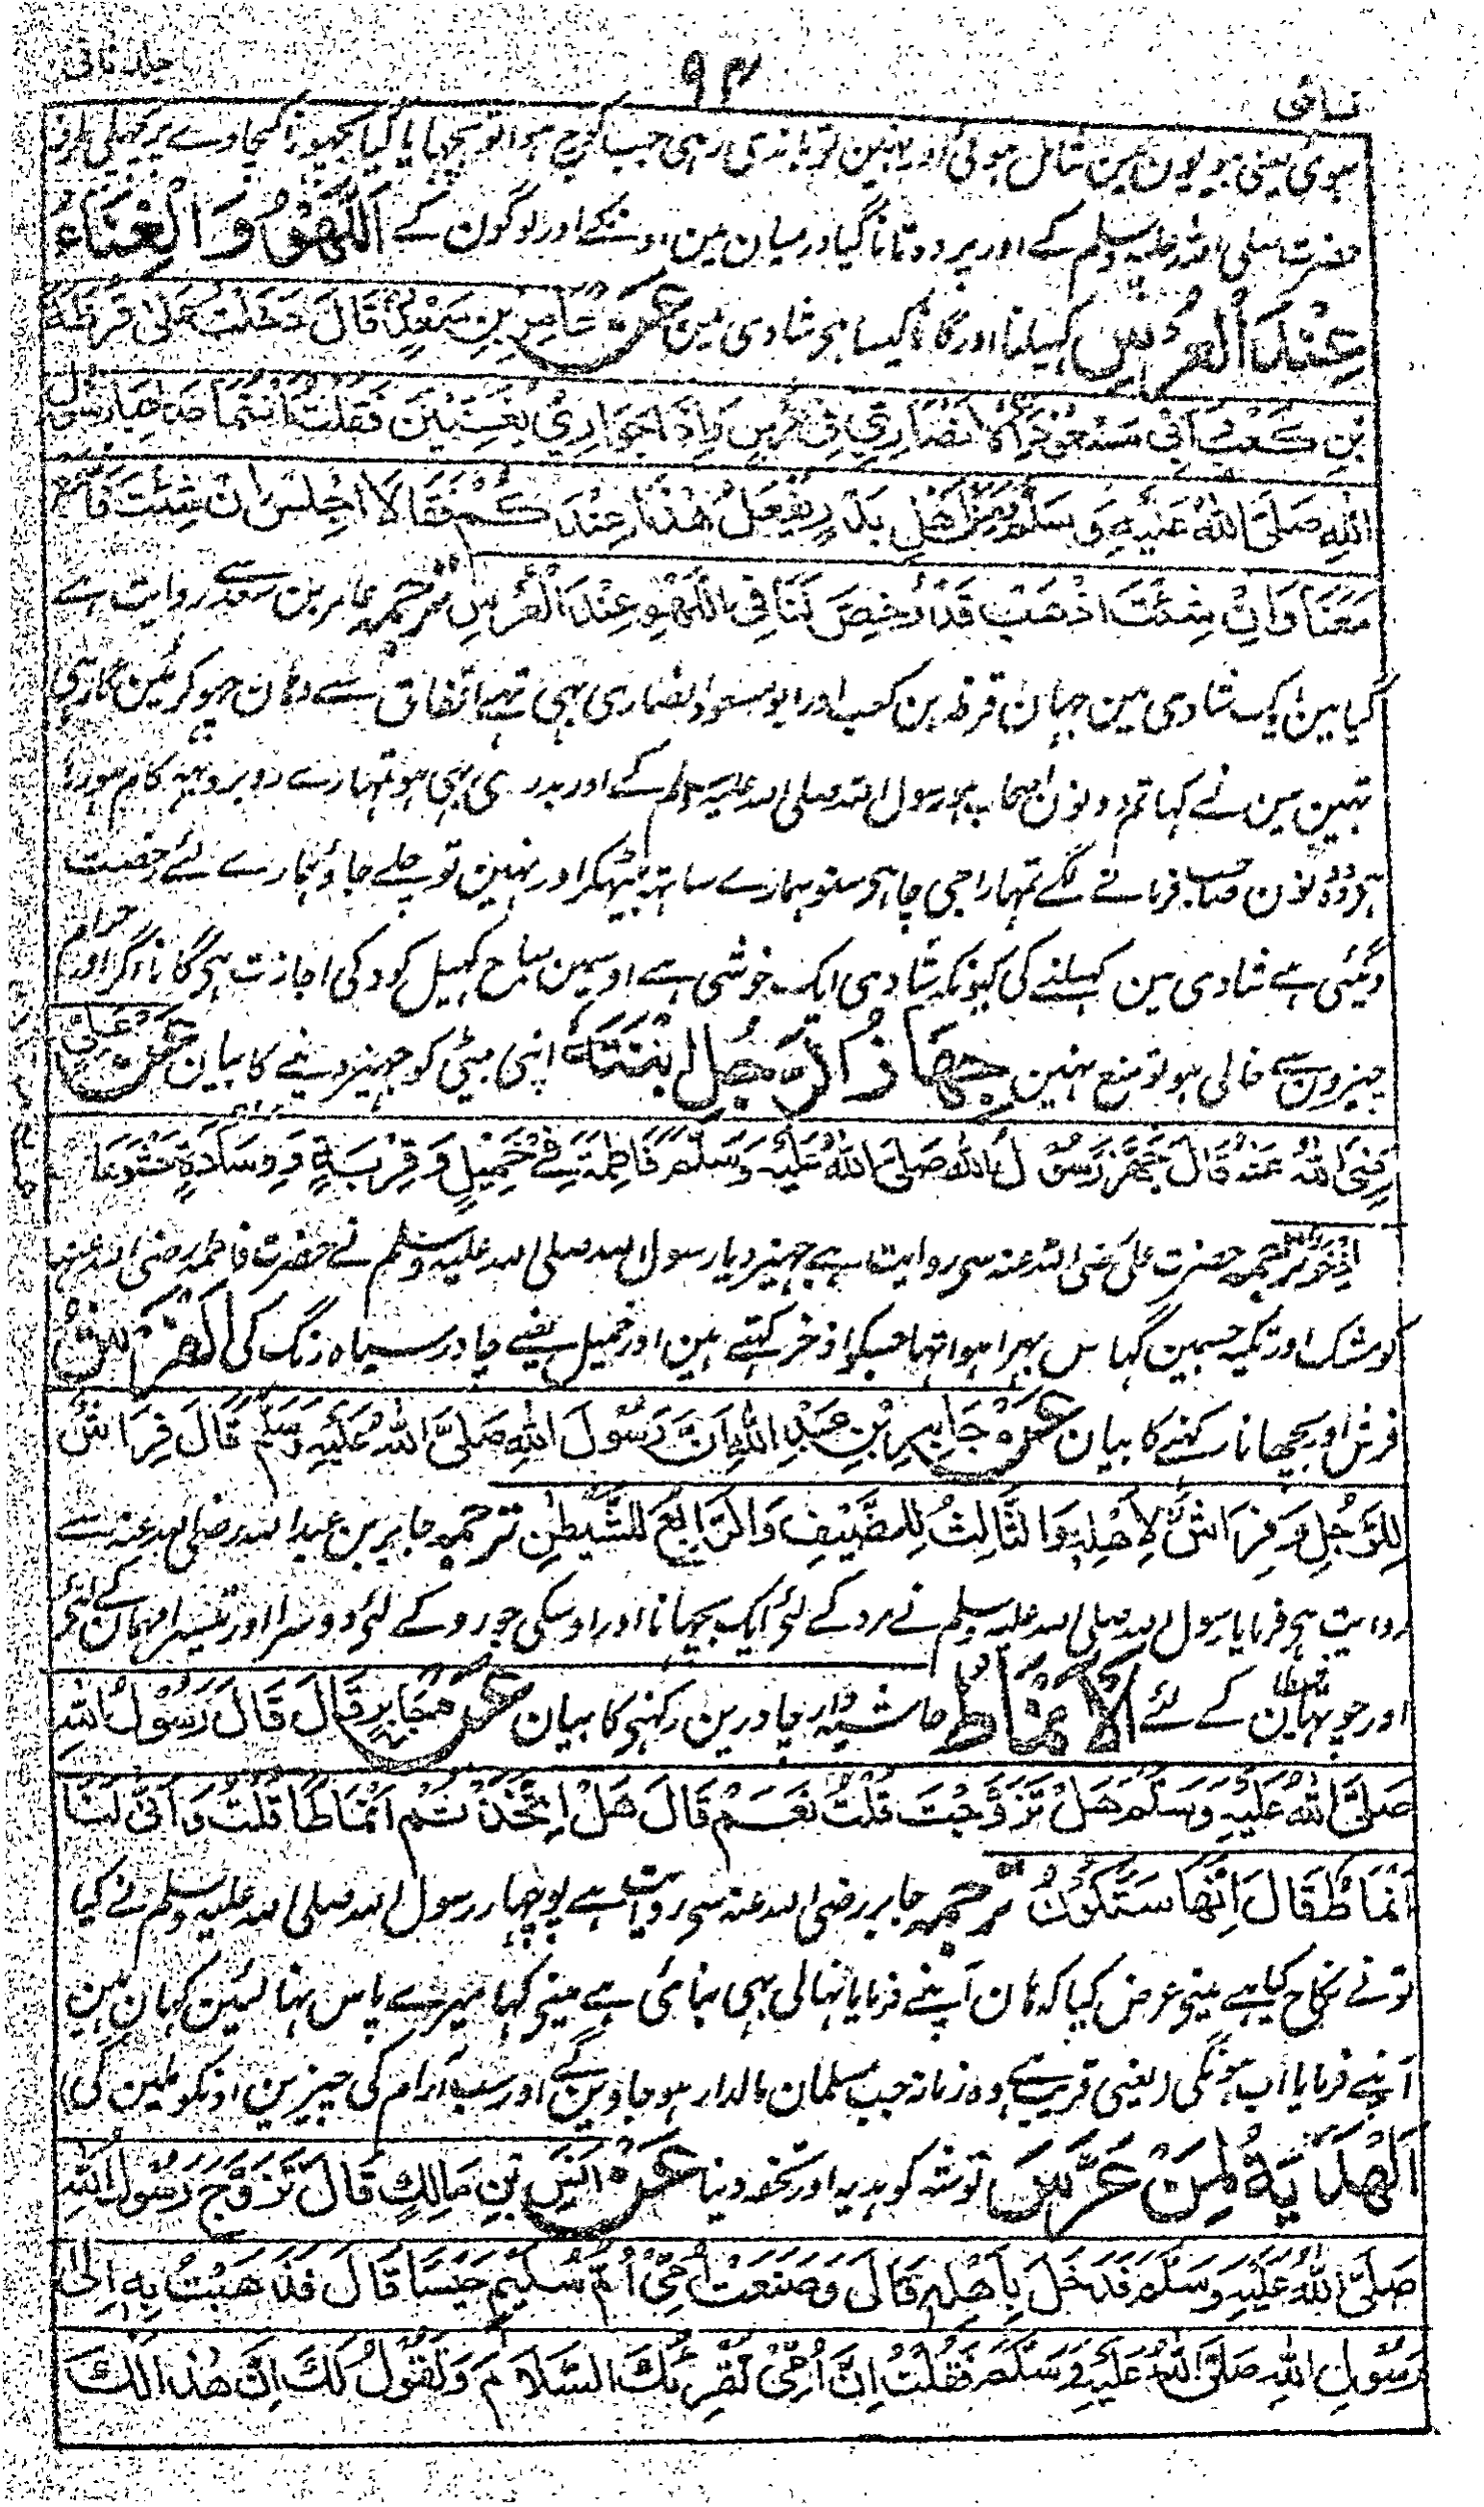 جلد ثانی
۹۴
نسائی
ہوئی یعنی بیویون مین شامل ہوئی اور نہین تو باندی رہی جب کوچ ہوا تو بچہایا گیا بچھونا کجاوے پر پچھلی طرف
حضرت صلی اللہ علیہ وسلم کے اور پردہ تانا گیا درمیان مین اونکے اور لوگون کے اَللَّهْوُ وَالْغِنَاءُ
عِنْدَ الْعُرْسِ کہیلنا اور گانا کیسا ہی شادی مین عَنْ عَامِرِ بْنِ سَعْدٍ قَالَ دَخَلْتُ عَلٰى قَرَظَةَ
بْنِ كَعْبٍ وَّاَبِیْ مَسْعُوْدٍ الْاَنْصَارِيِّ فِیْ عُرْسٍ وَاِذَا جَوَارِيْ يُغَنِّيْنَ فَقُلْتُ اَنْتُمَا صَاحِبَا رَسُوْلِ
اللهِ صَلَّى اللهُ عَلَيْهِ وَسَلَّمَ وَمِنْ اَهْلِ بَدْرٍ يُفْعَلُ هٰذَا عِنْدَكُمْ فَقَالَا اجْلِسْ اِنْ شِئْتَ فَاسْمَعْ
مَعَنَا وَاِنْ شِئْتَ اذْهَبْ قَدْ رُخِّصَ لَنَا فِی اللَّهْوِ عِنْدَ الْعُرْسِ ترجمہ عامر بن سعد سے روایت ہے
گیا مین ایک شادی مین جہان قرظہ بن کعب اور ابو مسعود انصاری بہی تہے اتفاق سے وہان چہوکرئین گارہی
تہین مین نے کہا تم دونون اصحاب ہو رسول اللہ صلی اللہ علیہ وسلم کے اور بدری بہی ہو تمہارے روبرو یہ کام ہورہا
ہی دونون صاحب فرمانے لگے تمہارا جی چاہی سنو ہمارے ساتہ بیٹہکر اور نہین تو چلے جاؤ ہمارے لئے رخصت
دیگئی ہے شادی مین کہیلنے کی کیونکہ شادی ایک خوشی ہے اوسمین مباح کہیل کود کی اجازت ہی گانا اگر اور حرام
چیزون سے خالی ہو تو منع نہین جِهَازُ الرَّجُلِ ابْنَتَهُ اپنی بیٹی کو جہیز دینے کا بیان عَنْ عَلِیٍّ
رَضِیَ اللهُ عَنْهُ قَالَ جَهَّزَ رَسُوْلُ اللهِ صَلَّى اللهُ عَلَيْهِ وَسَلَّمَ فَاطِمَةَ فِیْ خَمِيْلٍ وَقِرْبَةٍ وَوِسَادَةٍ حَشْوُهَا
اِذْخِرٌ ترجمہ حضرت علی رضی اللہ عنہ سی روایت ہے جہیز دیا رسول اللہ صلی اللہ علیہ وسلم نے حضرت فاطمہ رضی اللہ عنہا
کو مشک اور تکیہ جسمین گہاس بہرا ہوا تہا جسکو اذخر کہتے ہین اور خمیل یعنے چادر سیاہ رنگ کی اَلْفُرُشُ
فرش اور بچھانا رکہنے کا بیان عَنْ جَابِرِ بْنِ عَبْدِ اللهِ اَنَّ رَسُوْلَ اللهِ صَلَّى اللهُ عَلَيْهِ وَسَلَّمَ قَالَ فِرَاشٌ
لِلرَّجُلِ وَفِرَاشٌ لِاَهْلِهٖ وَالثَّالِثُ لِلضَّيْفِ وَالرَّابِعُ لِلشَّيْطٰنِ ترجمہ جابر بن عبد اللہ رضی اللہ عنہ سے
روایت ہی فرمایا رسول اللہ صلی اللہ علیہ وسلم نے مرد کے لئی ایک بچہانا اور اوسکی جورو کے لئی دوسرا اور تیسرا مہمان کے لئی
اور چوتہا شیطان کے لئے اَلْاَنْمَاطُ حاشیہ دار چادرین رکہنی کا بیان عَنْ جَابِرٍ قَالَ قَالَ رَسُوْلُ اللهِ
صَلَّى اللهُ عَلَيْهِ وَسَلَّمَ هَلْ تَزَوَّجْتَ قُلْتُ نَعَمْ قَالَ هَلِ اتَّخَذْتُمْ اَنْمَاطًا قُلْتُ وَاَنّٰى لَنَا
اَنْمَاطٌ قَالَ اِنَّهَا سَتَكُوْنُ ترجمہ جابر رضی اللہ عنہ سی روایت ہے پوچہا رسول اللہ صلی اللہ علیہ وسلم نے کیا
تو نے نکاح کیا ہے مینی عرض کیا کہ ہان آپنے فرمایا نہالی بہی بنائی ہے مینی کہا میرے پاس نہالئین کہان ہین
آپنے فرمایا اب ہونگی (یعنی قریب ہے وہ زمانہ جب مسلمان مالدار ہو جاوینگے اور سب آرام کی چیزین اونکو ملین گی)
اَلْهَدِيَّةُ لِمَنْ عَرَّسَ نوشہ کو ہدیہ اور تحفہ دینا عَنْ اَنَسِ بْنِ مَالِكٍ قَالَ تَزَوَّجَ رَسُوْلُ اللهِ
صَلَّى اللهُ عَلَيْهِ وَسَلَّمَ فَدَخَلَ بِاَهْلِهٖ قَالَ وَصَنَعَتْ اُمِّیْ اُمُّ سُلَيْمٍ حَيْسًا قَالَ فَذَهَبْتُ بِهٖ اِلٰى
رَسُوْلِ اللهِ صَلَّى اللهُ عَلَيْهِ وَسَلَّمَ فَقُلْتُ اِنَّ اُمِّیْ تُقْرِئُكَ السَّلَامَ وَتَقُوْلُ لَكَ اِنَّ هٰذَا لَكَ